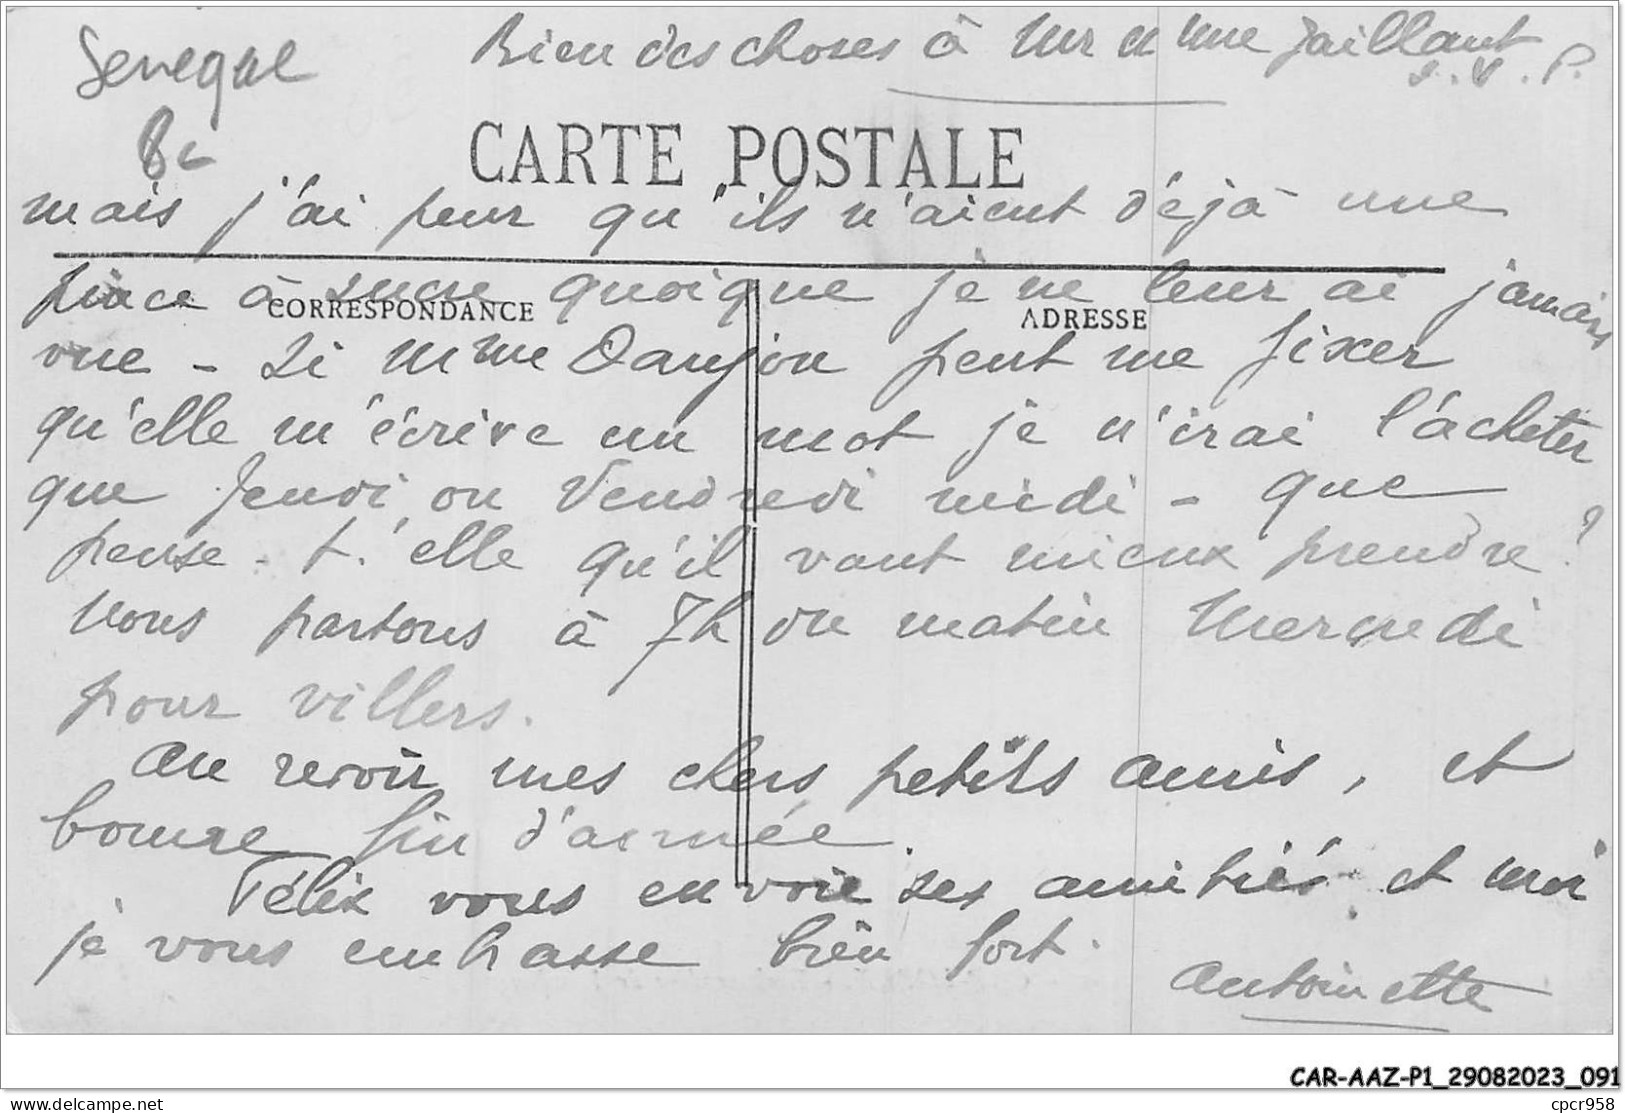 Senegal
8c
Bien des choses à Mr et Mme Jaillant
s.v.P.
CARTE POSTALE
mais j'ai peur qu'ils n'aient déjà une
pince à sucre quoique je ne leur ai jamais
CORRESPONDANCE
ADRESSE
vue - Si Mme Daujou peut me fixer
qu'elle m'écrive un mot je n'irai l'acheter
que Jeudi ou Vendredi midi - que
pense-t-elle qu'il vaut mieux prendre?
Nous partons à 7h du matin Mercredi
pour Villers.
Au revoir mes chers petits amis, et
bonne fin d'année.
Félix vous envoie ses amitiés et moi
je vous embrasse bien fort.
Antoinette
CAR-AAZ-P1_29082023_091
delcampe.net
cpcr958